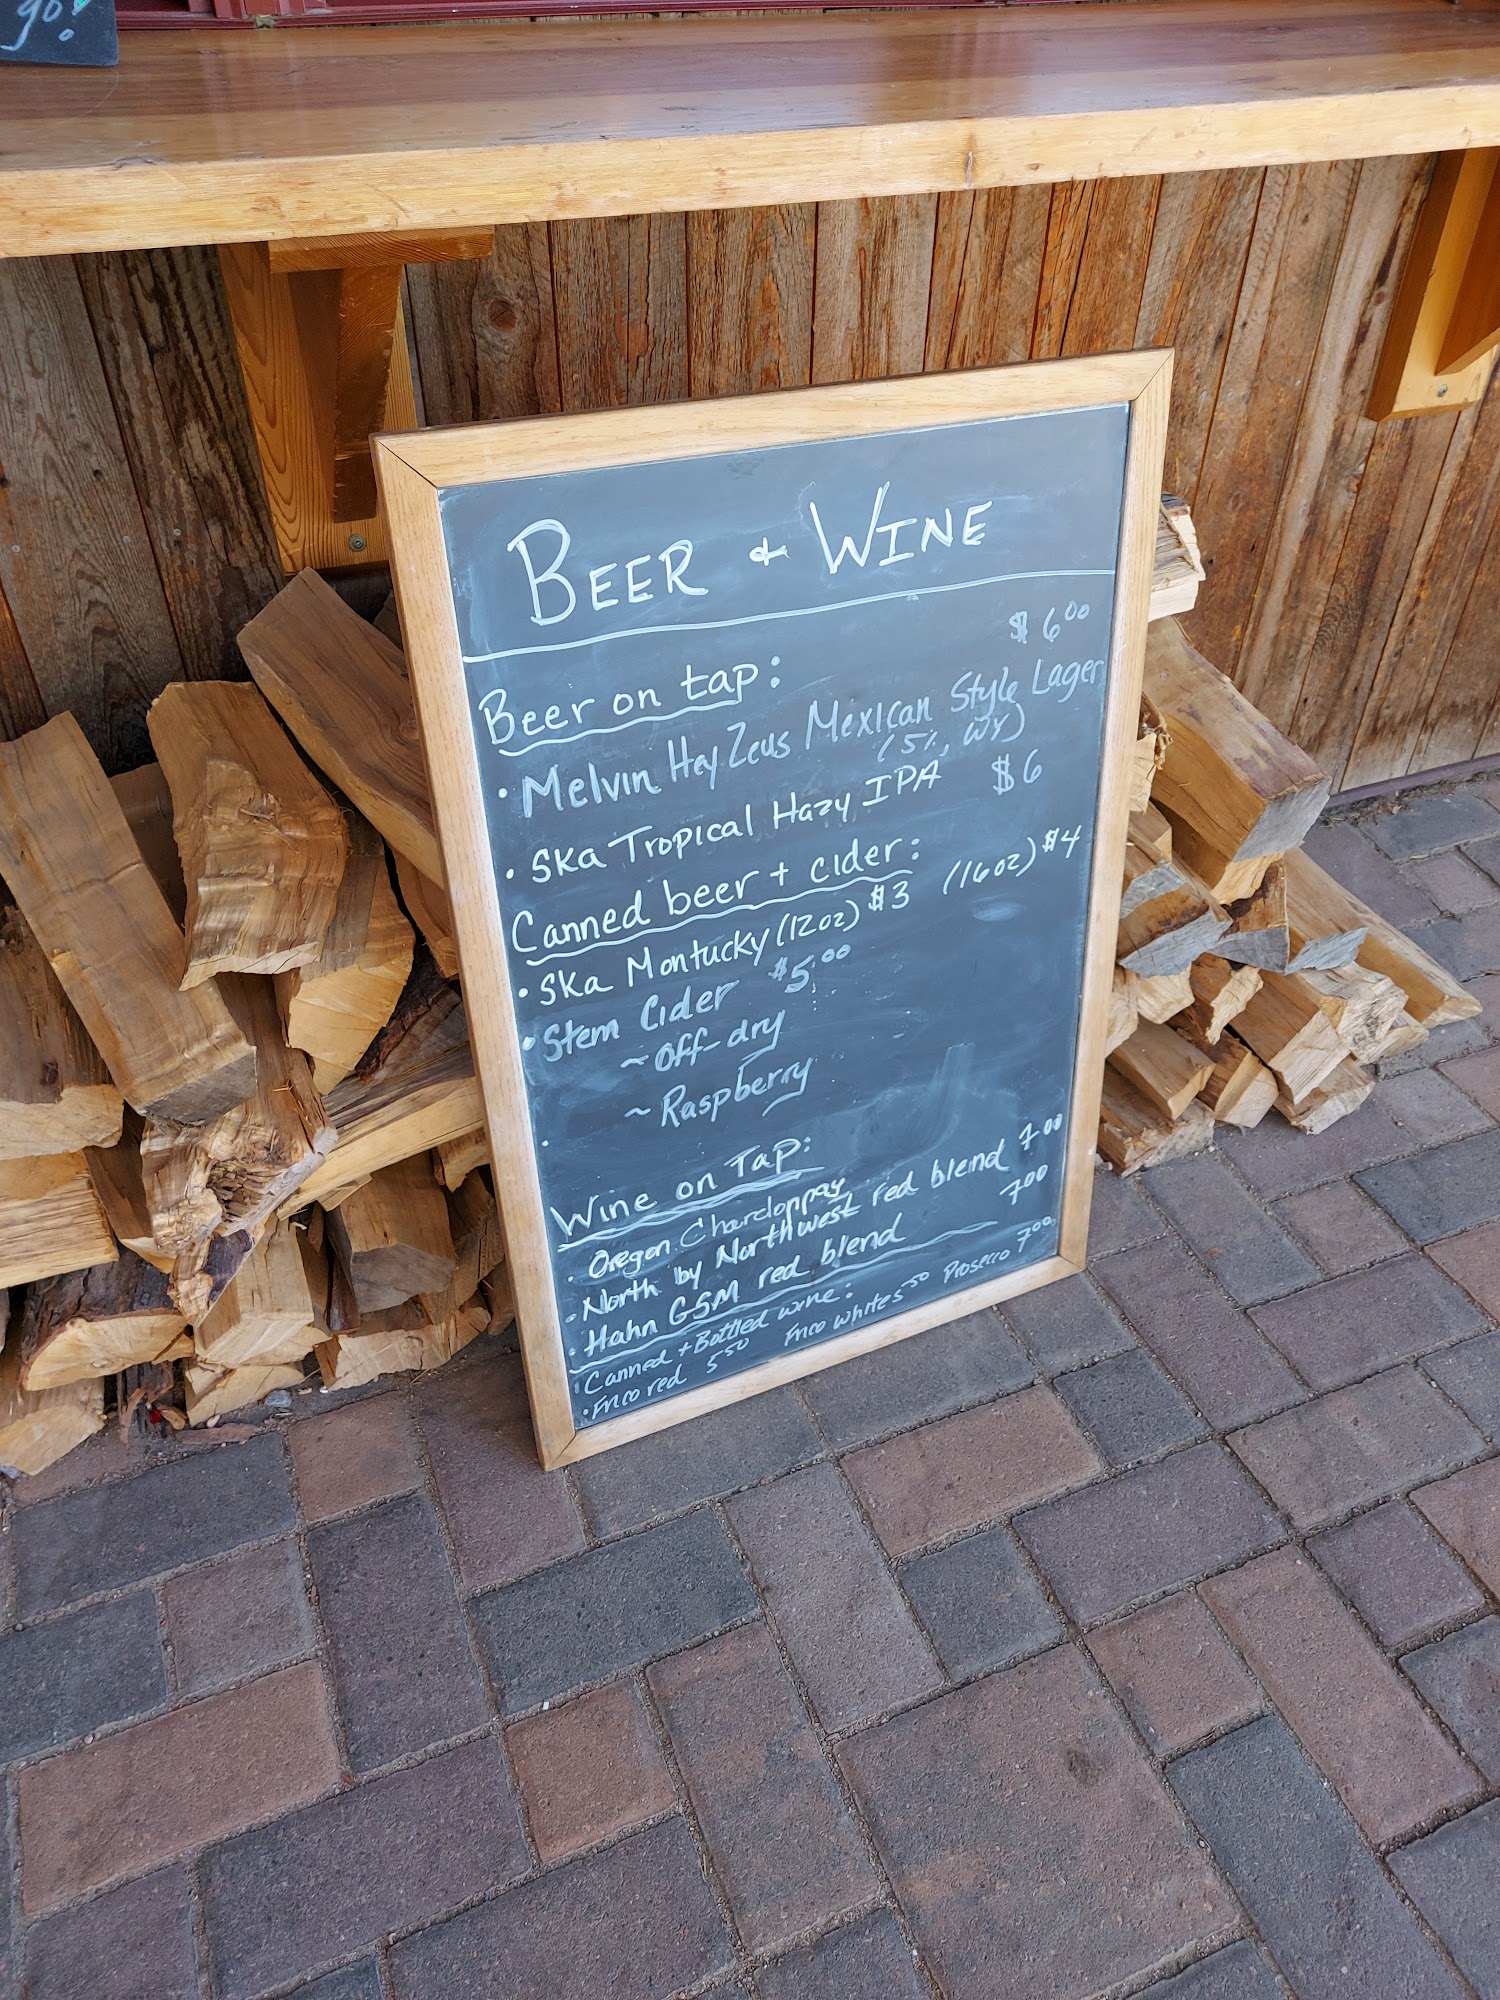 go!
BEER + WINE
Beer on tap: $6.00
• Melvin Hey Zeus Mexican Style Lager
(5%, WY)
• Ska Tropical Hazy IPA $6
Canned beer + cider:
• Ska Montucky (12oz) $3 (16oz) $4
• Stem Cider $5.00
~ Off-dry
~ Raspberry
•
Wine on Tap:
• Oregon Chardonnay
• North by Northwest red blend 7.00
• Hahn GSM red blend 7.00
Canned + Bottled wine:
• Frico red 5.50 Frico white 5.50 Prosecco 7.00